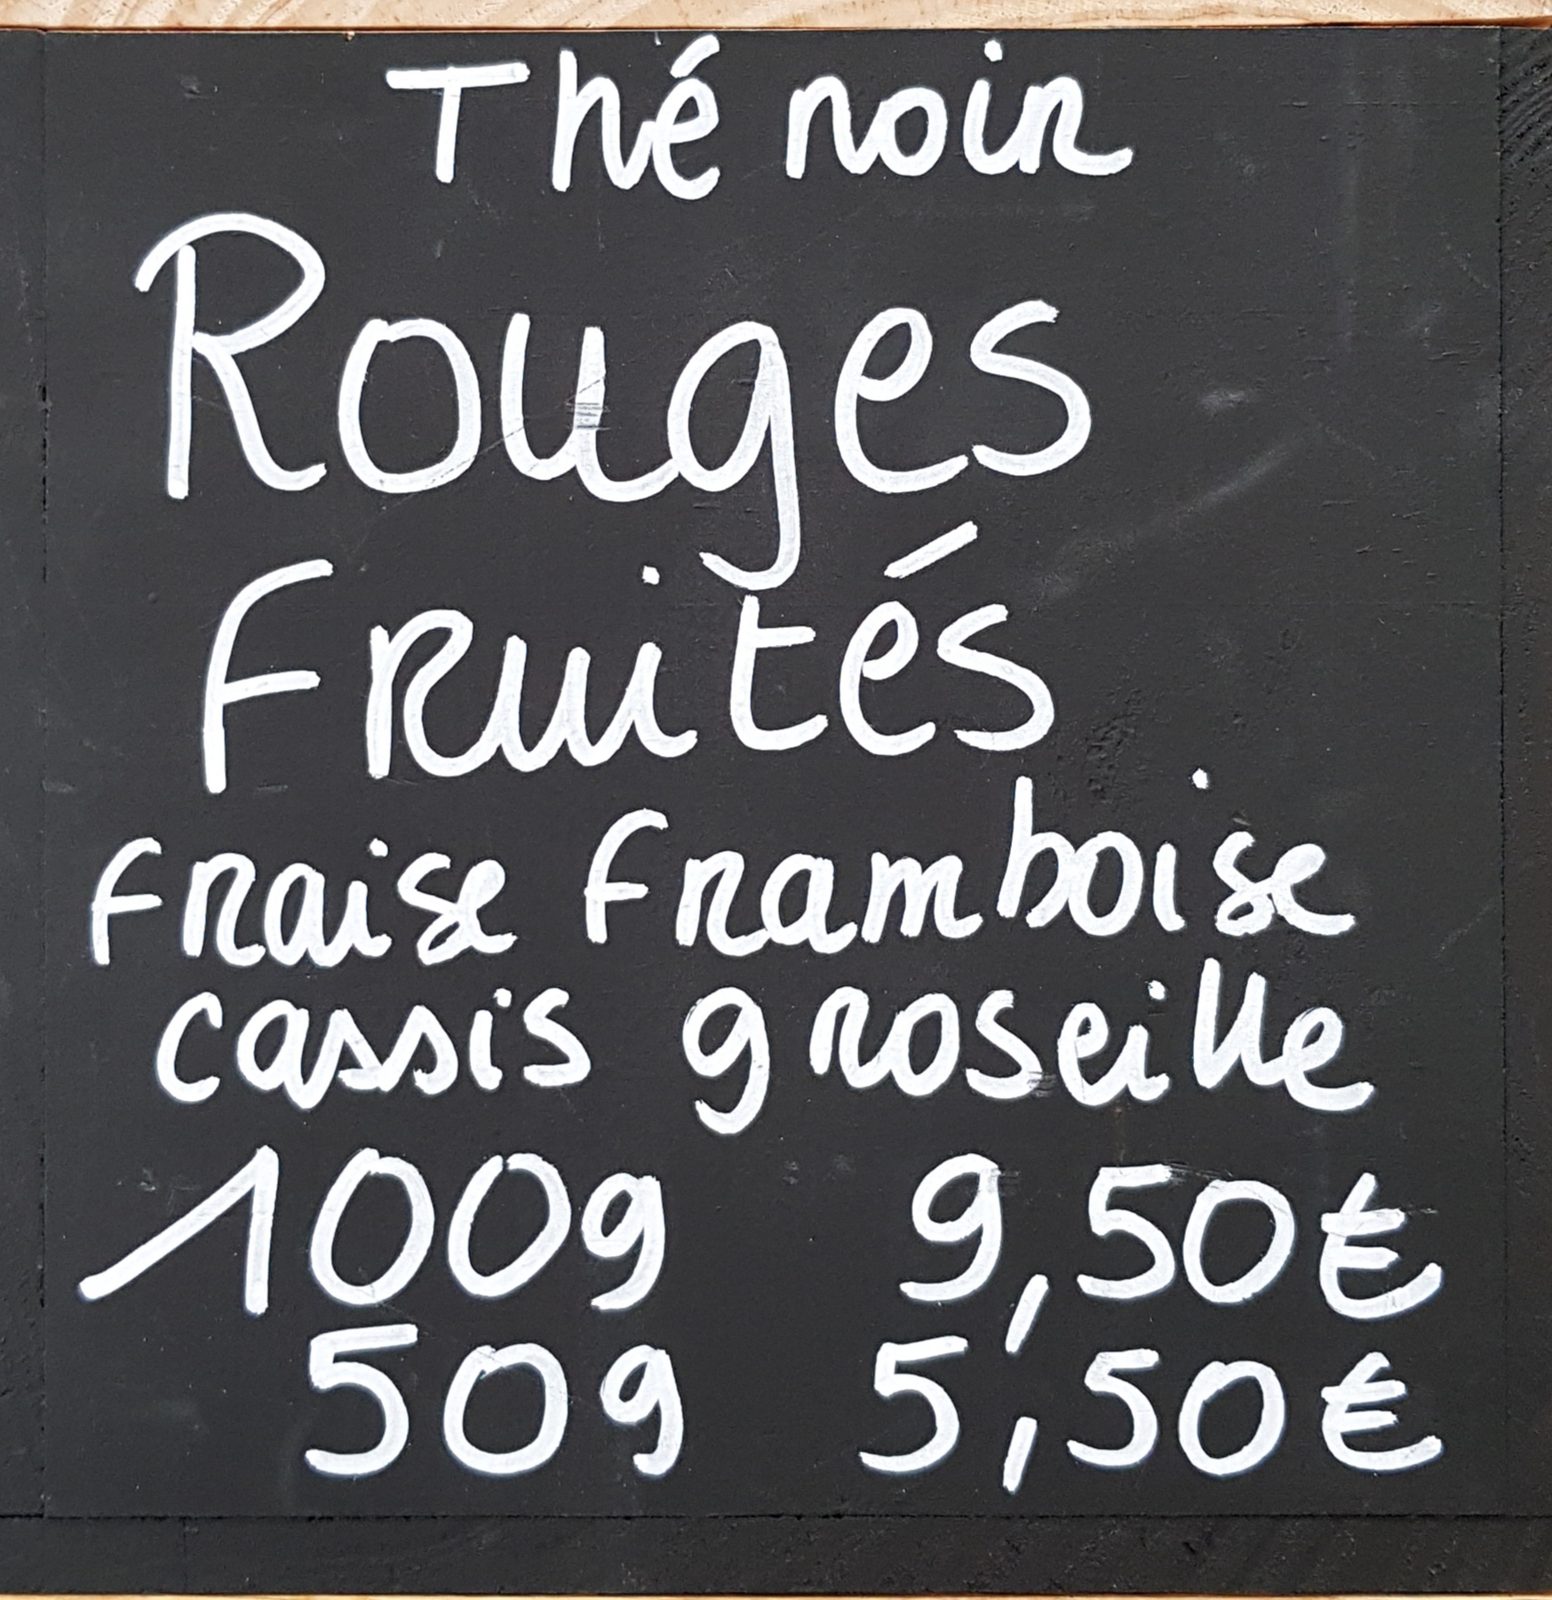 Thé noir
Rouges
Fruités
fraise framboise
cassis groseille
100g 9,50€
50g 5,50€